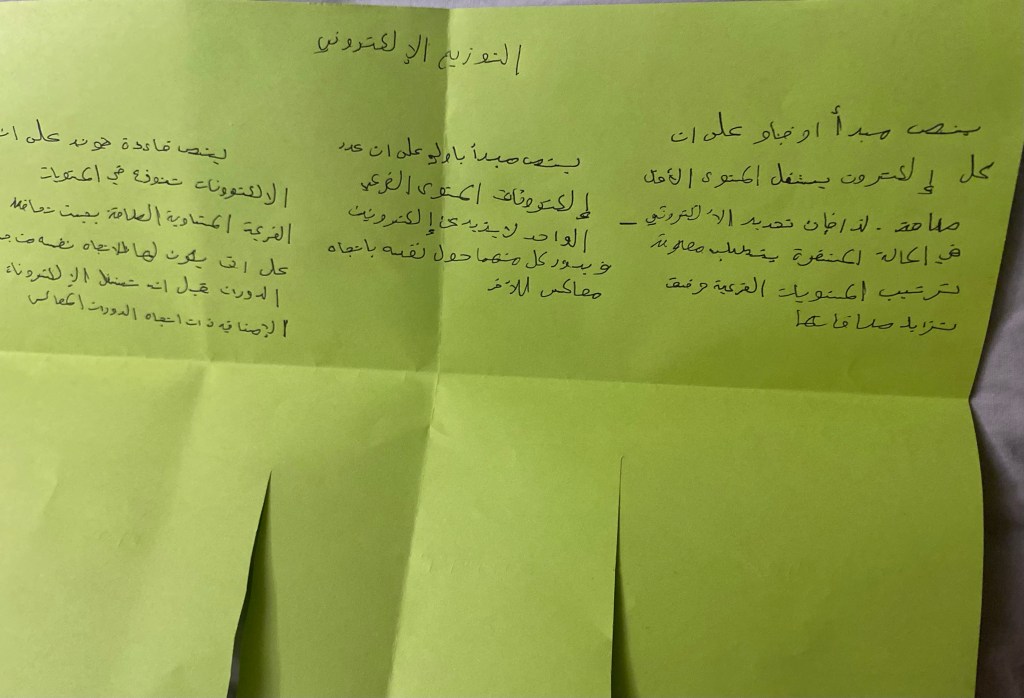 التوزيع الإلكتروني
ينص مبدأ اوفباو على ان
كل إلكترون يشغل المستوى الأقل
طاقة . لذا فإن تحديد الإلكتروني
في الحالة المستقرة يتطلب معرفة
ترتيب المستويات الفرعية وفق
تزايد طاقاتها
ينص مبدأ باولي على ان عدد
إلكترونات المستوى الفرعي
الواحد لا يزيد عن إلكترونين
ويدور كل منهما حول نفسه باتجاه
معاكس للآخر
ينص قاعدة هوند على ان
الالكترونات تتوزع في المستويات
الفرعية المتساوية الطاقة بحيث تحافظ
على ان يكون لها الاتجاه نفسه من
الدوران قبل ان تشغل الإلكترونات
الإضافية ذات اتجاه الدوران المعاكس